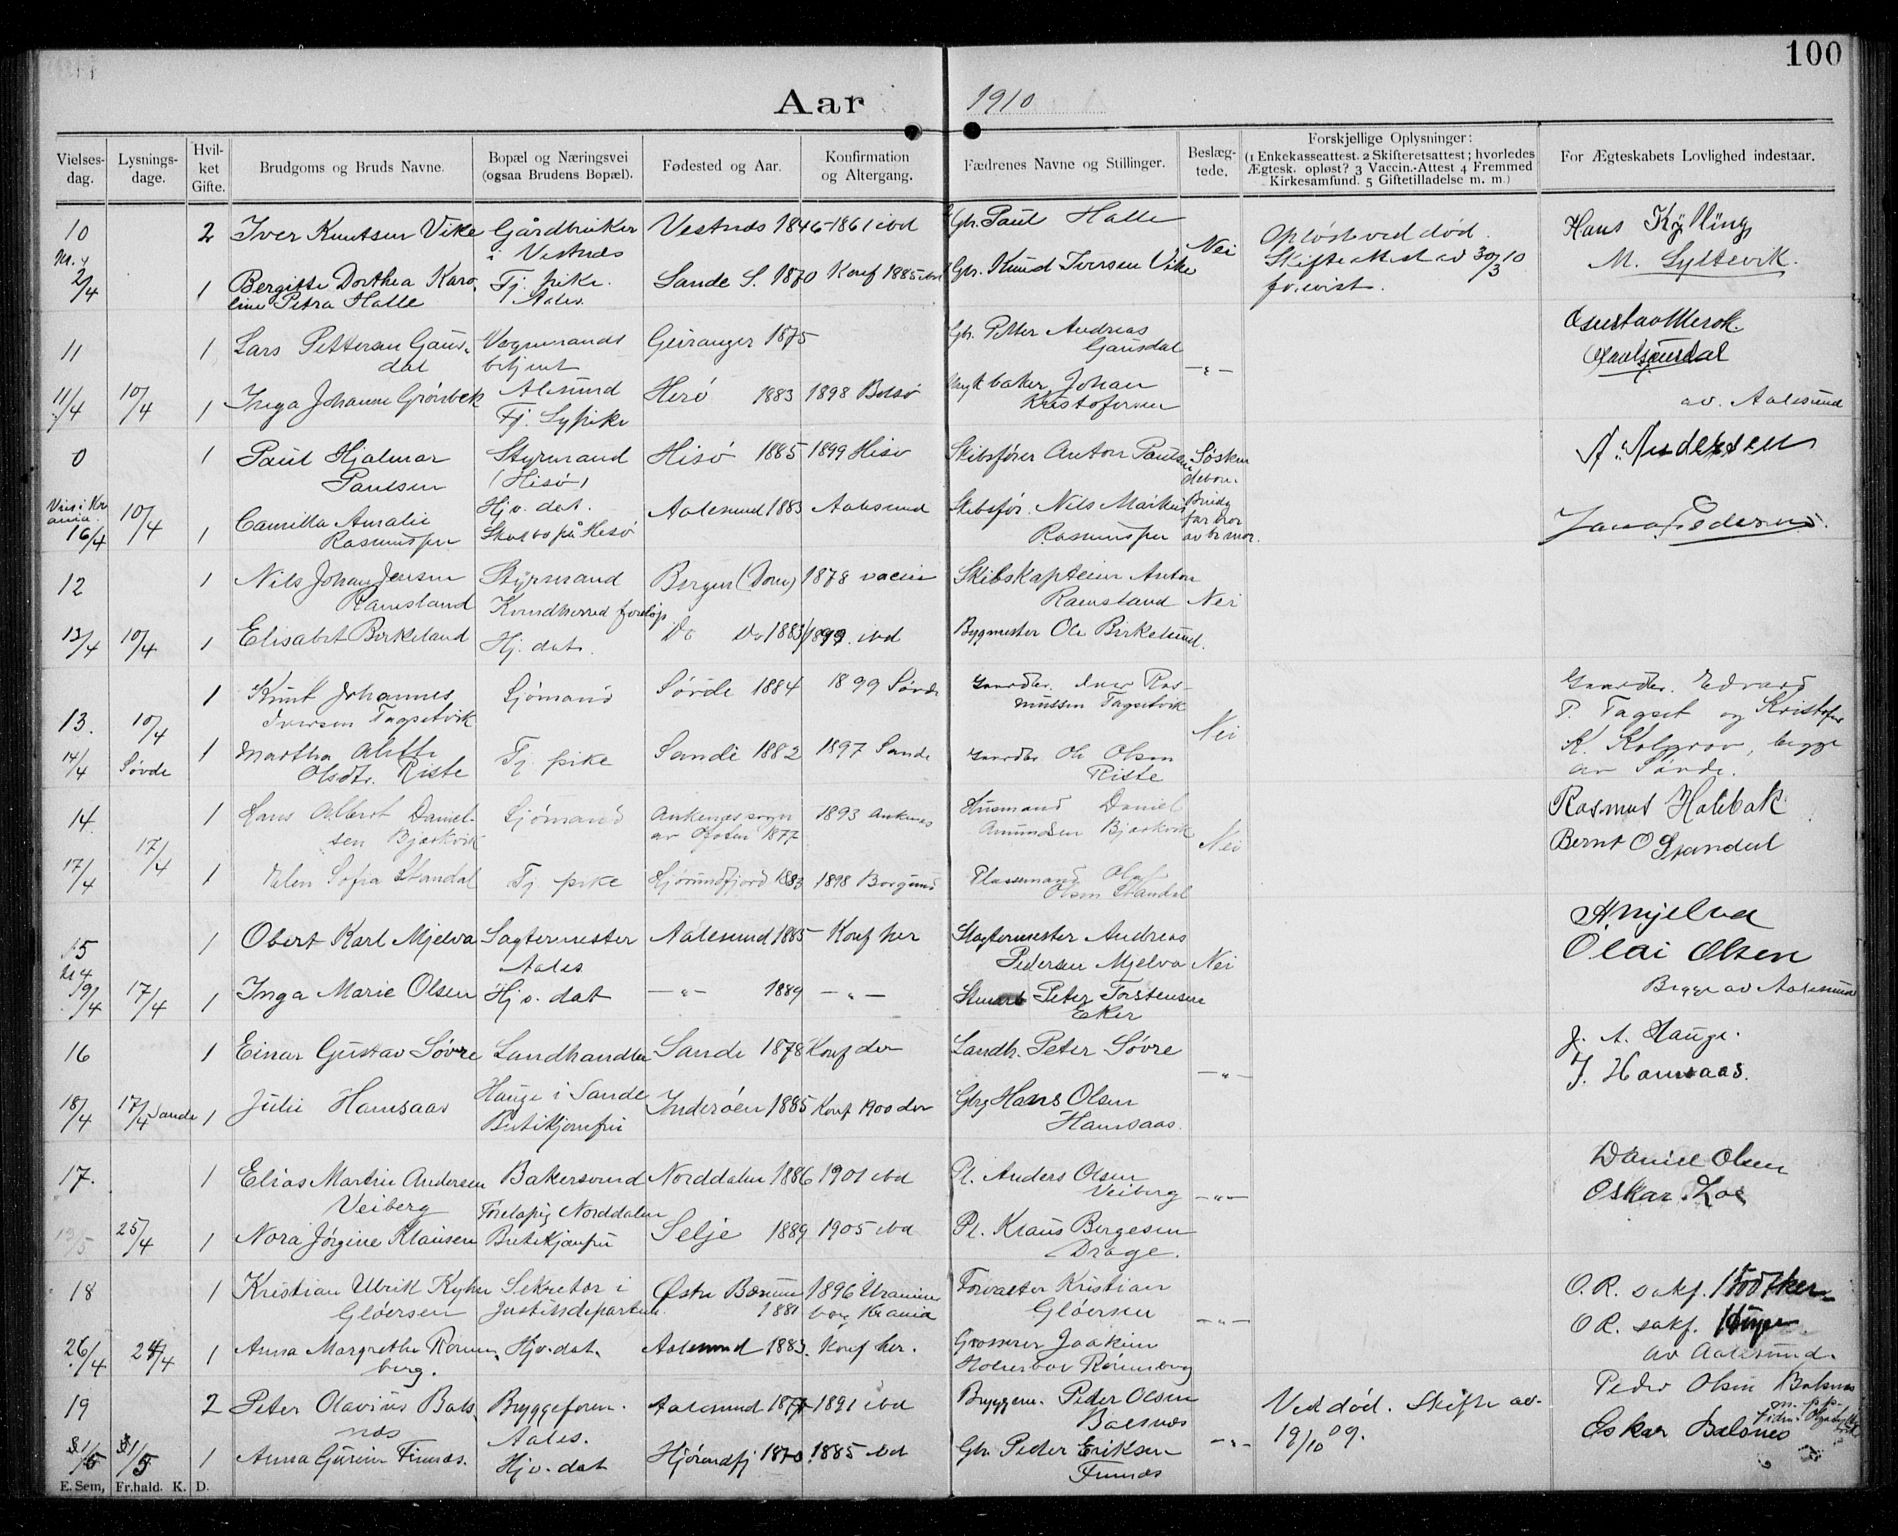 100
Aar 1910
Vielses-dag. Lysnings-dage. Hvil-ket Gifte. Brudgoms og Bruds Navne. Bopæl og Næringsvei (ogsaa Brudens Bopæl). Fødested og Aar. Konfirmation og Altergang. Fædrenes Navne og Stillinger. Beslæg-tede. Forskjellige Oplysninger: (1 Enkekasseattest. 2 Skifteretsattest; hvorledes Ægtesk. opløst? 3 Vaccin.-Attest 4 Fremmed Kirkesamfund. 5 Giftetilladelse m. m.) For Ægteskabets Lovlighed indestaar.
10 2 Iver Knutsen Vike Gårdbruker i Vestnes Vestnes 1846 1861 ibd Gbr. Paul Halle Nei Opløst ved død. Skifteattest av 30/3 10 forevist. Hans Kylling
2/4 1 Bergitte Dorthea Karoline Petra Halle Tj. pike. Aales. Sande S. 1870 Konf 1885 ibd Gbr. Knud Iversen Vike M. Syltevik.
11 1 Lars Petteran Gausdal Vognmands betjent Geiranger 1875 Gbr. Petter Andreas Gausdal
11/4 10/4 1 Inga Johanne Grönbek Alesund Tj. Sypike Herö 1883 1898 Bolsö baker Johan Kristofersen -"- av. Aalesund
0 1 Paul Hjalmar Paulsen Styrmand (Hisö) Hisö 1885 1899 Hisö Skibsförer Anton Paulsen Søsken A. Andersen
16/4 10/4 1 Camilla Amalie Rasmussen Hjv. dat. på Hisö Aalesund 1883 Aalesund Skibsför. Nils Markus Rasmussen Jana Pedersen.
12 1 Nils Johan Jensen Ramsland Styrmand Kvindherred foreløp Bergen (Dom) 1878 vaccin Skibskaptein Anton Ramsland Nei
13/4 10/4 1 Elisabet Birkeland Hj. dat. Do Do 1883 1899. ibd Bygmester Ole Birkeland.
13. 10/4 1 Knut Johannes Iversen Tagsetvik Sjömand Sörde 1884 1899 Sörde Gaardbr. Iver Rasmussen Tagsetvik Nei Gaardbr. Edvard P. Tagset og Kristofer
14/4 Sövde 1 Martha Alette Olsdtr. Riste Tj. pike Sande 1882 1897 Sande Gaardbr Ole Olsen Riste K. Kolgrov, begge av Sövde.
14. 17/4 1 Hans Albert Danielsen Bjerkvik Sjömand Ankenes sogn av Ofoten 1877 1893 Ankenes Husmand Daniel Amundsen Bjerkvik Nei Rasmus Holebak
17/4 1 Elen Sofia Standal Tj. pike Hjörundfjord 1883 1898 Borgund Plassemand Ola Olsen Standal Bernt O Standal
15 1 Obert Karl Mjelva Sagtermester Aales Aalesund 1885 Konf her Slagtermester Andreas Pedersen Mjelva Nei A. Mjelva
19/4 17/4 1 Inga Marie Olsen Hjv. dat -"- 1889 -"- Peter Torstensen Eker Olai Olsen Begge av Aalesund
16 1 Einar Gustav Sövre Landhandler Sande 1878 Konf der Landh. Peter Sövre J. A. Hauge.
18/4 17/4 Sande 1 Julie Hamsaas Hauge i Sande Butikjomfru Inderöen 1885 Konf 1900 der Gbr Hans Olsen Hamsaas. -"- J. Hamsaas.
17. 1 Elias Martin Andersen Veiberg Bakersvend Foreløpig Norddalen Norddalen 1886 1901 ibd Pl. Anders Olsen Veiberg -"- Daniel Olsen
25/4 1 Nora Jørgine Klausen Butikjomfru Selje 1889 1905 ibd Pl. Klaus Børgesen Drage. Oskar
18 1 Kristian Ulrik Kyhn Glöersen Sekretær i Justitsdepartem. Østre Bærum 1881 1896 Uranienborg Krania Forvalter Kristian Glöersen -"- O.R. sakf.
26/4 24/4 1 Anna Margrethe Rönneberg. Hjv. dat. Aalesund 1883. Konf her. Grosserer Joakim Rönneberg O R. sakf. av Aalesund.
19 2 Peter Olavius Balsnes Bryggeform. Aales. Aalesund 1877 1891 ibd Bryggem. Peder Olsen Balsnes Ved död. Skifte av 19/10 09. Peder Olsen Balsnes
31/5 31/5 1 Anna Gurine Finnes. Hjv. dat Hjörundfj 1870. 1885 ibd Gbr. Peder Eriksen Finnes -"- Oskar Balsnes
E. Sem, Fr.hald. K. D.